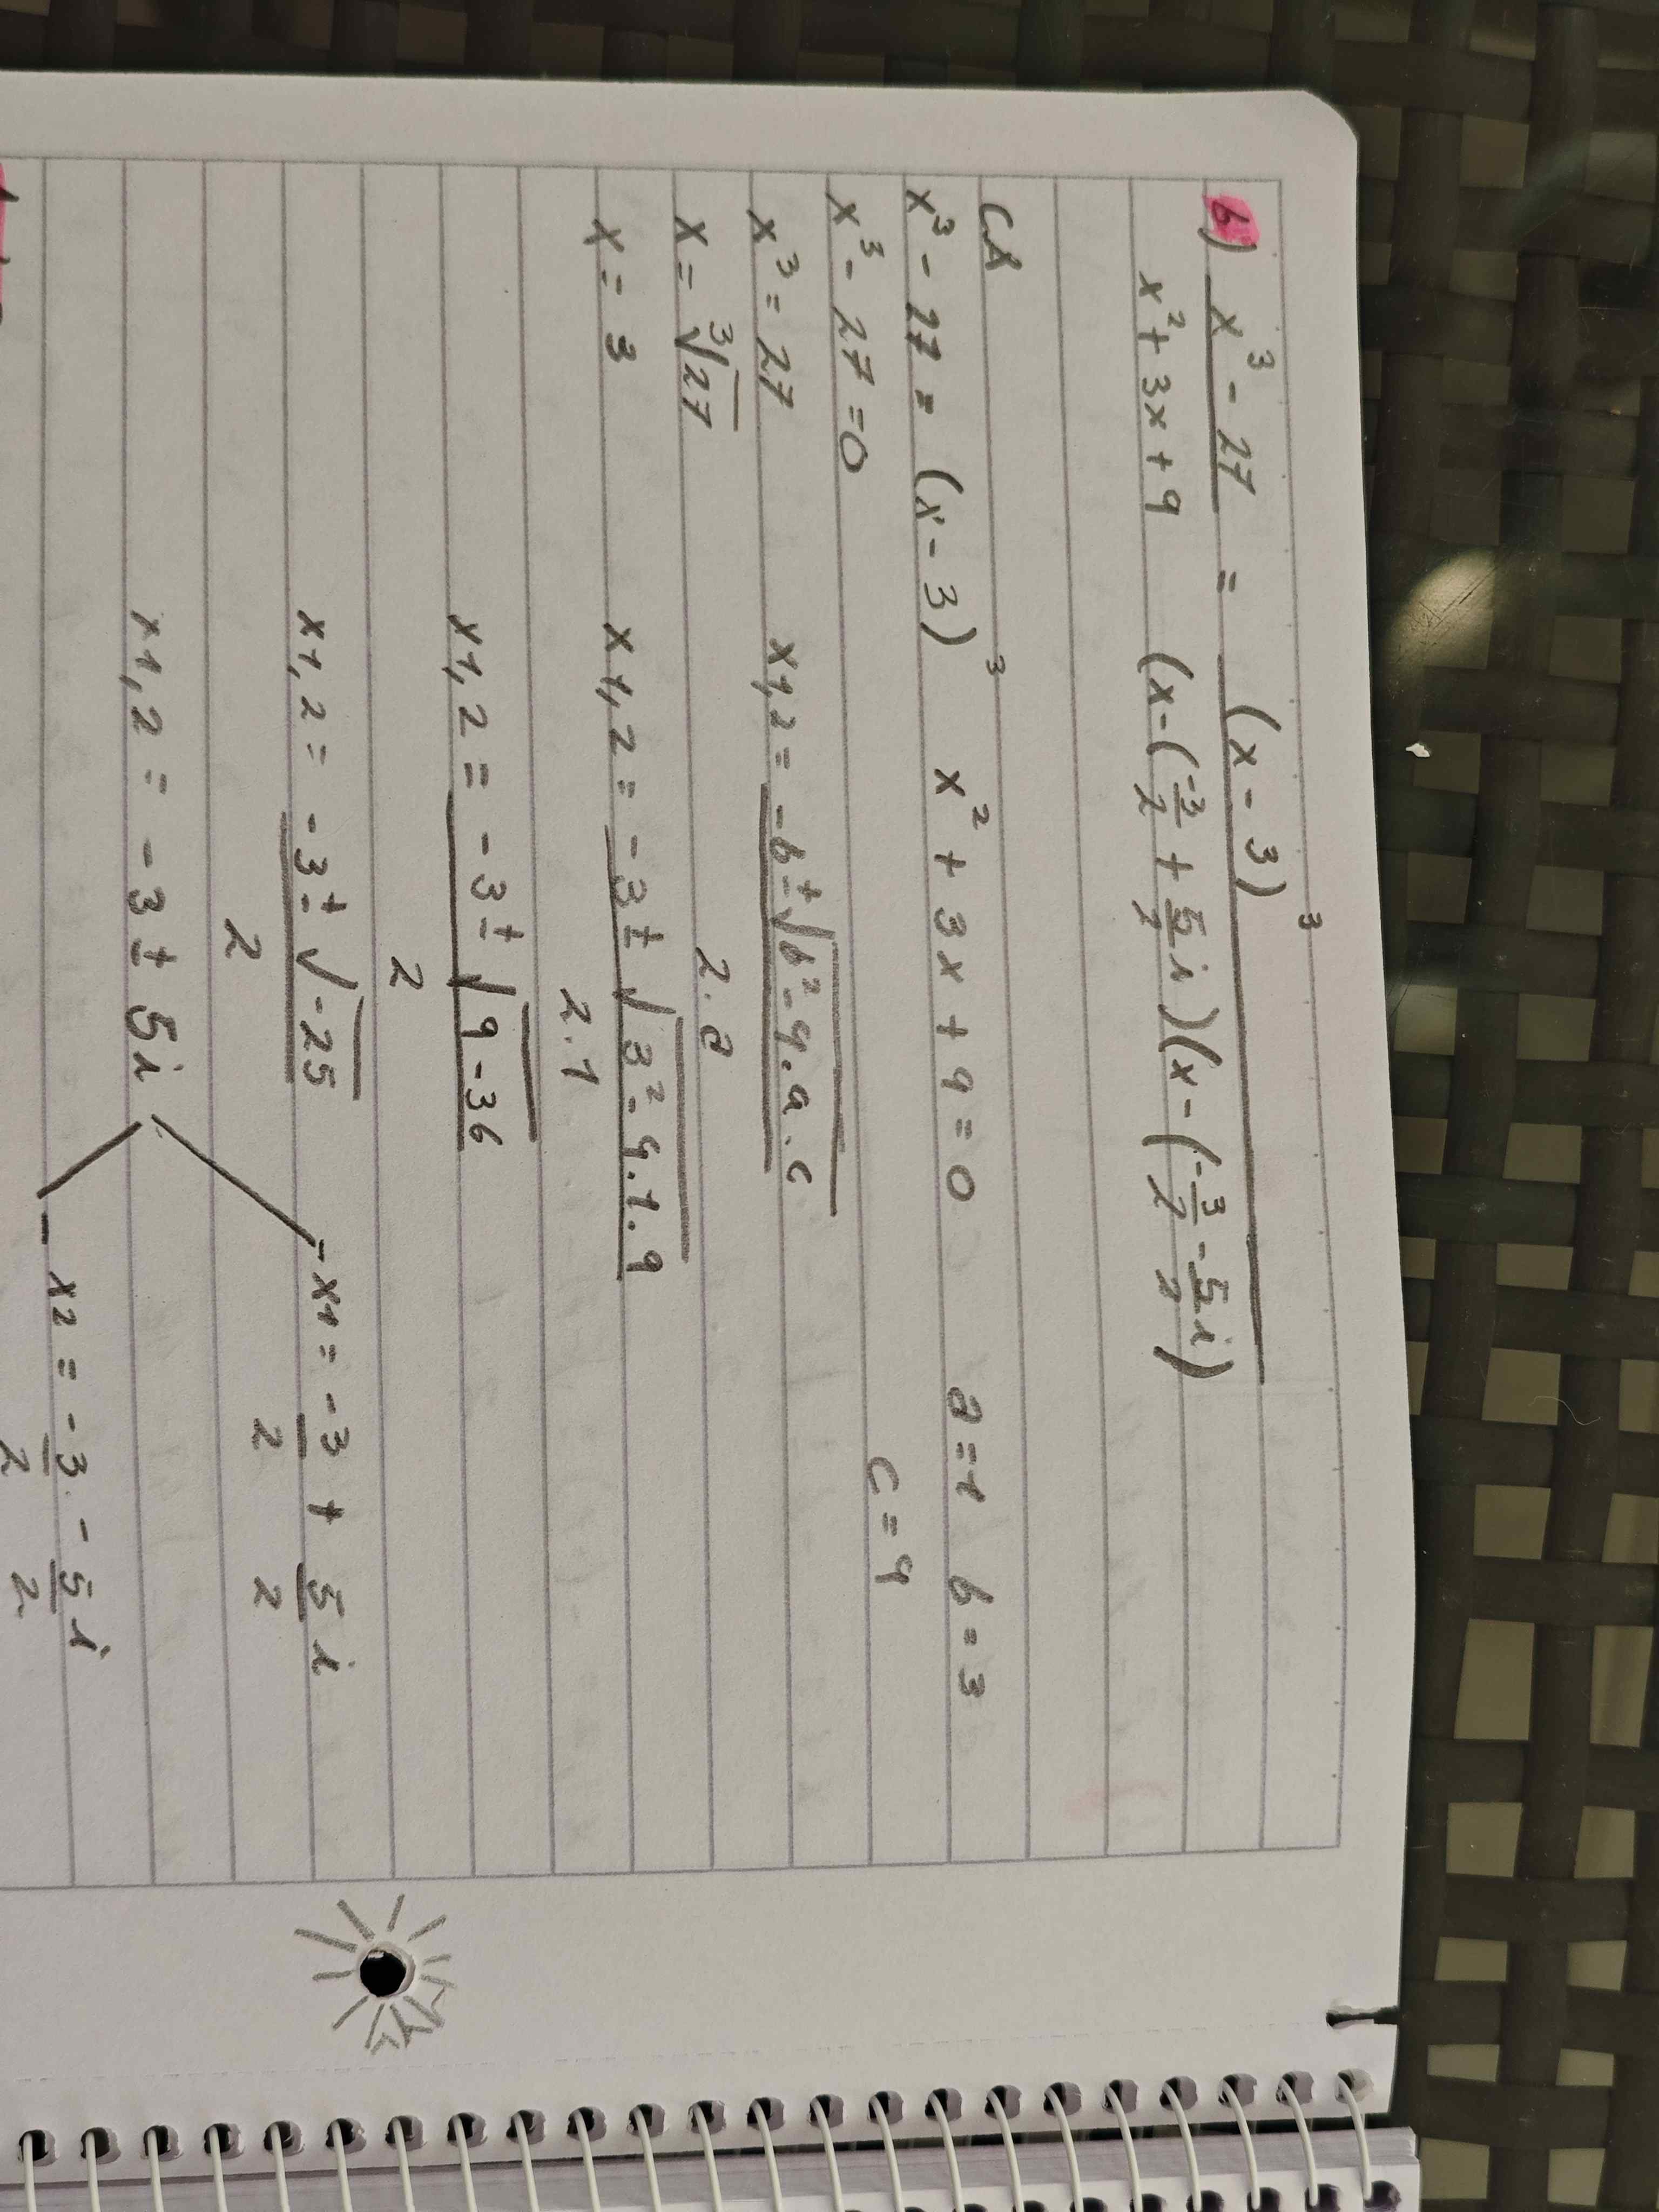 b) x³ - 27 = (x - 3)³
x² + 3x + 9 (x - (-3/2 + 5/2 i)) (x - (-3/2 - 5/2 i))
CA
x³ - 27 = (x - 3)³ x² + 3x + 9 = 0 a = 1 b = 3
x³ - 27 = 0 c = 9
x³ = 27 x1,2 = -b ± √b² - 4.a.c
2.a
x = ³√27
x = 3 x1,2 = -3 ± √3² - 4.1.9
2.1
x1,2 = -3 ± √9 - 36
2
x1,2 = -3 ± √-25 x1 = -3/2 + 5/2 i
2
x1,2 = -3 ± 5i
x2 = -3/2 - 5/2 i